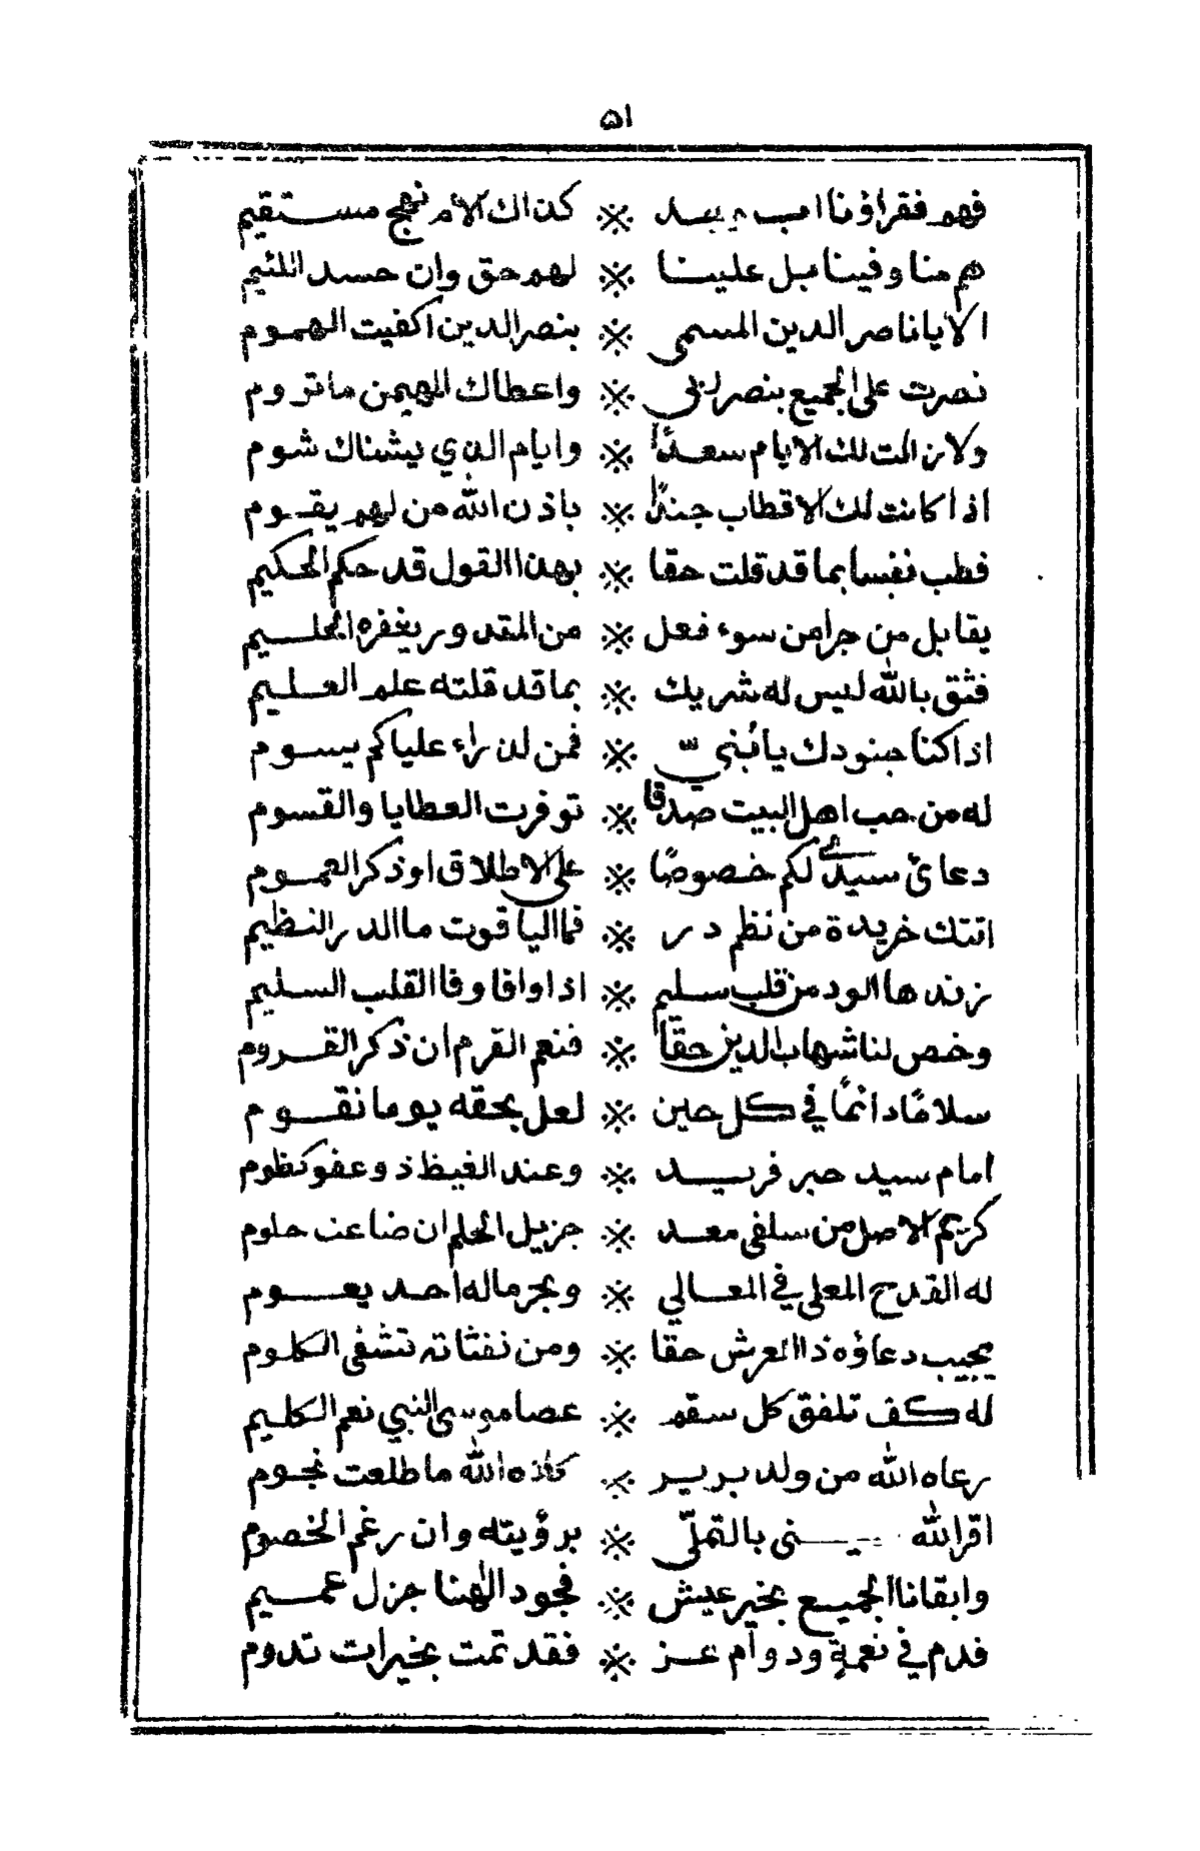 ٥١
فهم فقراؤنا اب وجد ※ كذاك الأم نهج مستقيم
هم منا وفينا بل علينا ※ لهم حق وان حسد اللئيم
الا يا ناصر الدين المسمى ※ بنصر الدين اكفيت الهموم
نصرت على الجميع بنصر ربي ※ واعطاك المهيمن ما تروم
ولا زالت لك الايام سعدًا ※ وايام الذي يشناك شوم
اذا كانت لك الاقطاب جندًا ※ باذن الله من لهم يقوم
فطب نفسا بما قد قلت حقا ※ بهذا القول قد حكم الحكيم
يقابل من جرا من سوء فعل ※ من المقدور يغفره الحليم
فثق بالله ليس له شريك ※ بما قد قلته علم العليم
اذا كنا جنودك يا بُنيّ ※ فمن لذراء علياكم يسوم
له من حب اهل البيت صدقا ※ توفرت العطايا والقسوم
دعائ سيدي لكم خصوصًا ※ على الاطلاق او ذكر العموم
اتتك خريدة من نظم در ※ فما الياقوت ما الدر النظيم
زندها الود من قلب سليم ※ اذا وافا وفا القلب السليم
وخص لنا شهاب الدين حقًا ※ فنعم القرم ان ذكر القروم
سلامًا دائمًا في كل حين ※ لعل بحقه يوما نقوم
امام سيد حبر فريد ※ وعند الغيظ ذو عفو كظوم
كريم الاصل من سلفى معد ※ جزيل الحلم ان ضاعت حلوم
له القدح المعلى في المعالي ※ وبحر ماله احد يعوم
يجيب دعاؤه ذا العرش حقا ※ ومن نفثاته تشفى الكلوم
له كف تلفق كل سقم ※ عصا موسى النبي نعم الكليم
رعاه الله من ولد برير ※ كلاه الله ما طلعت نجوم
اقر الله عيني بالتملّي ※ برؤيته وان رغم الخصوم
وابقانا الجميع بخير عيش ※ فجود الهنا جزل عميم
فدم في نعمةٍ ودوام عز ※ فقد تمت بخيرات تدوم